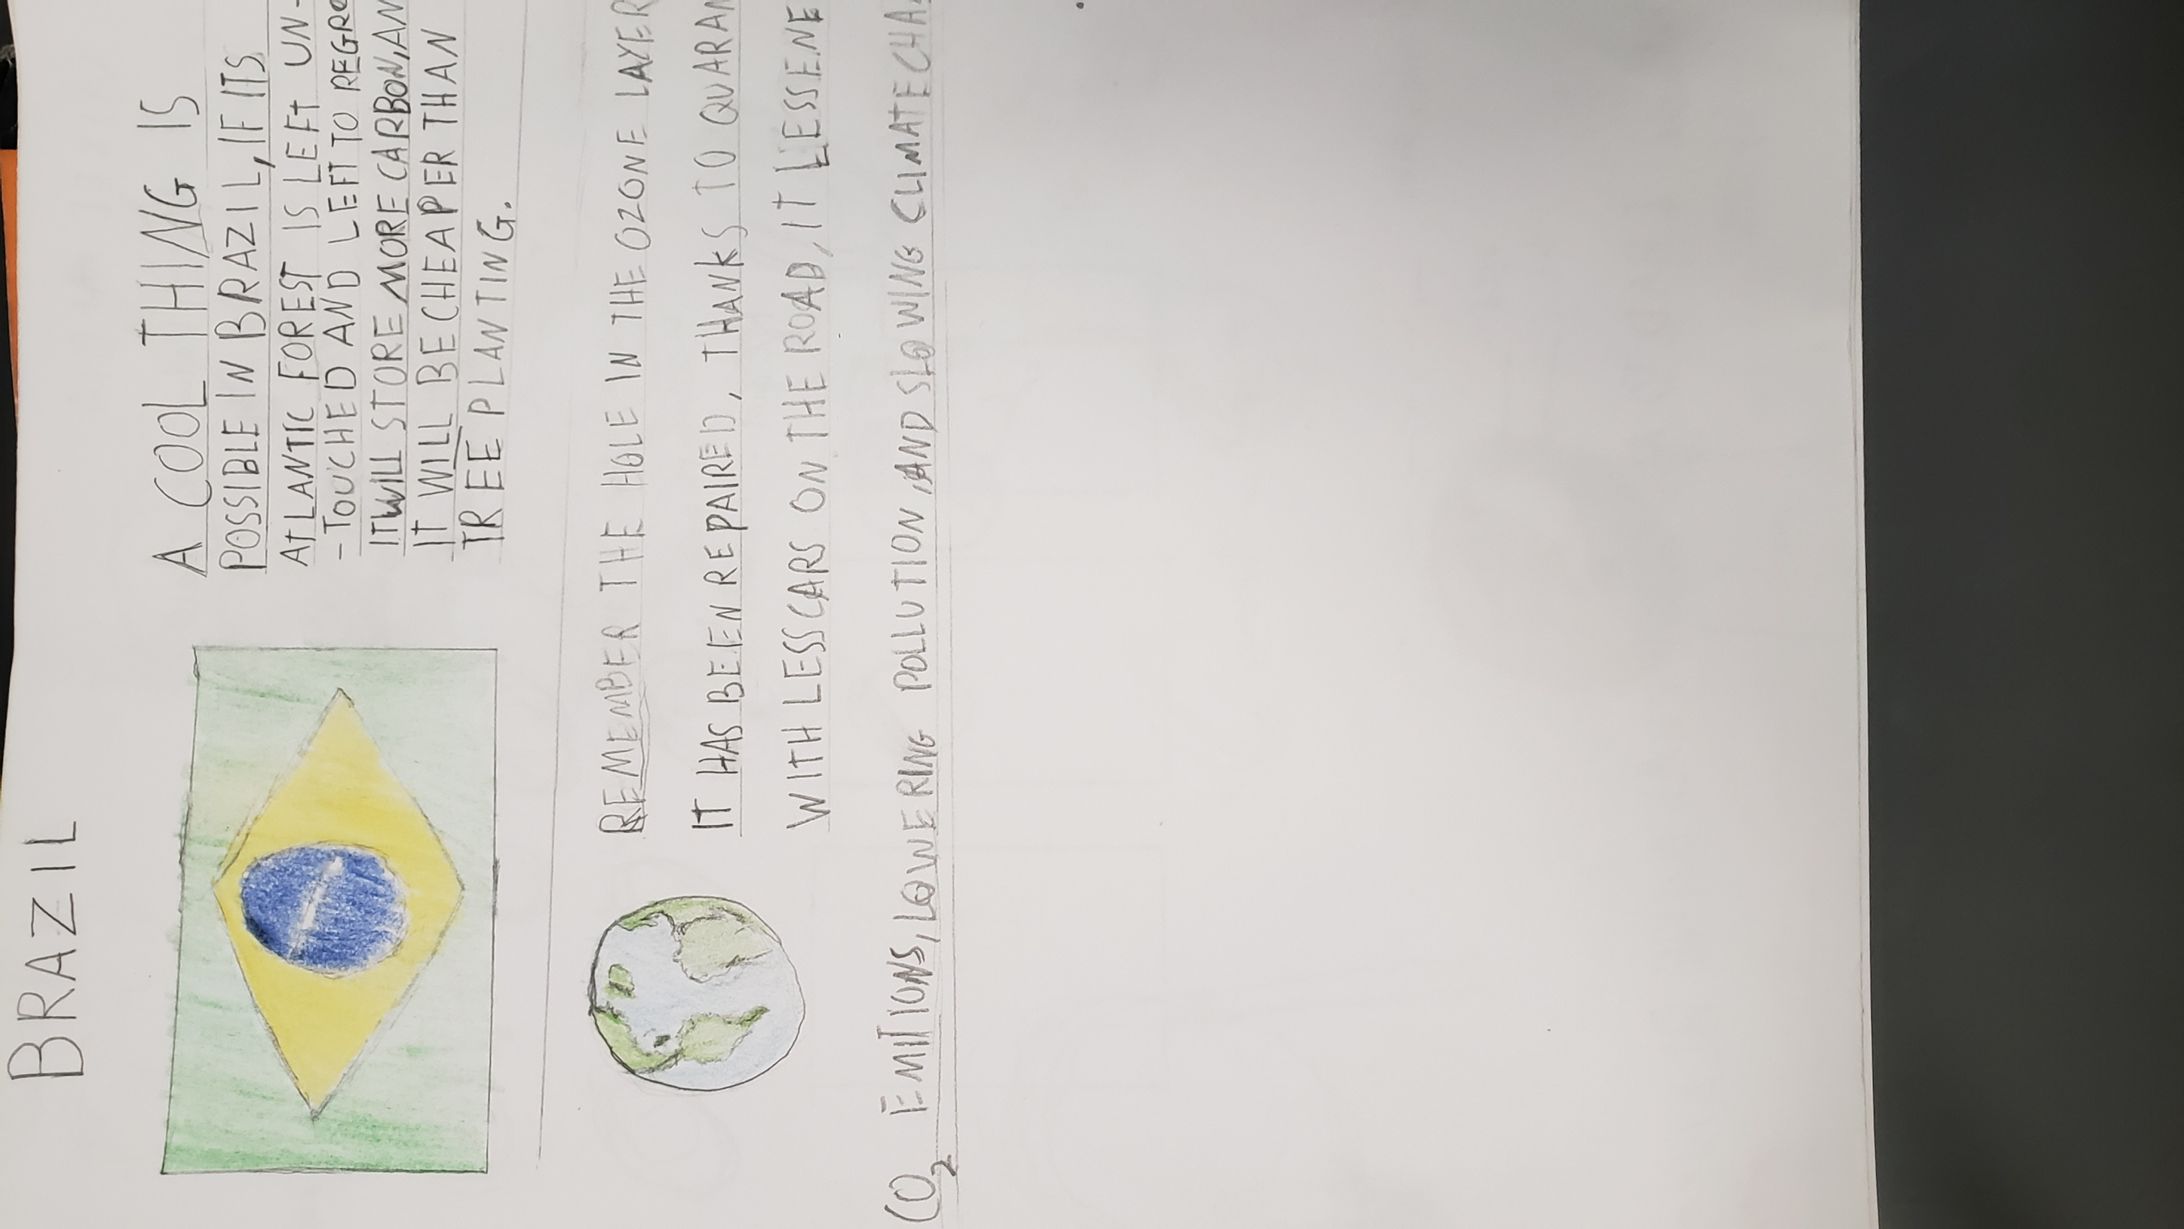 BRAZIL
A COOL THING IS
POSSIBLE IN BRAZIL, IF ITS
ATLANTIC FOREST IS LEFT UN-
-TOUCHED AND LEFT TO REGRO
IT WILL STORE MORE CARBON, AN
IT WILL BE CHEAPER THAN
TREE PLANTING.
REMEMBER THE HOLE IN THE OZONE LAYER
IT HAS BEEN REPAIRED, THANKS TO QUARAN
WITH LESS CARS ON THE ROAD, IT LESSENE
CO2 EMITIONS, LOWERING POLLUTION AND SLOWING CLIMATE CHA